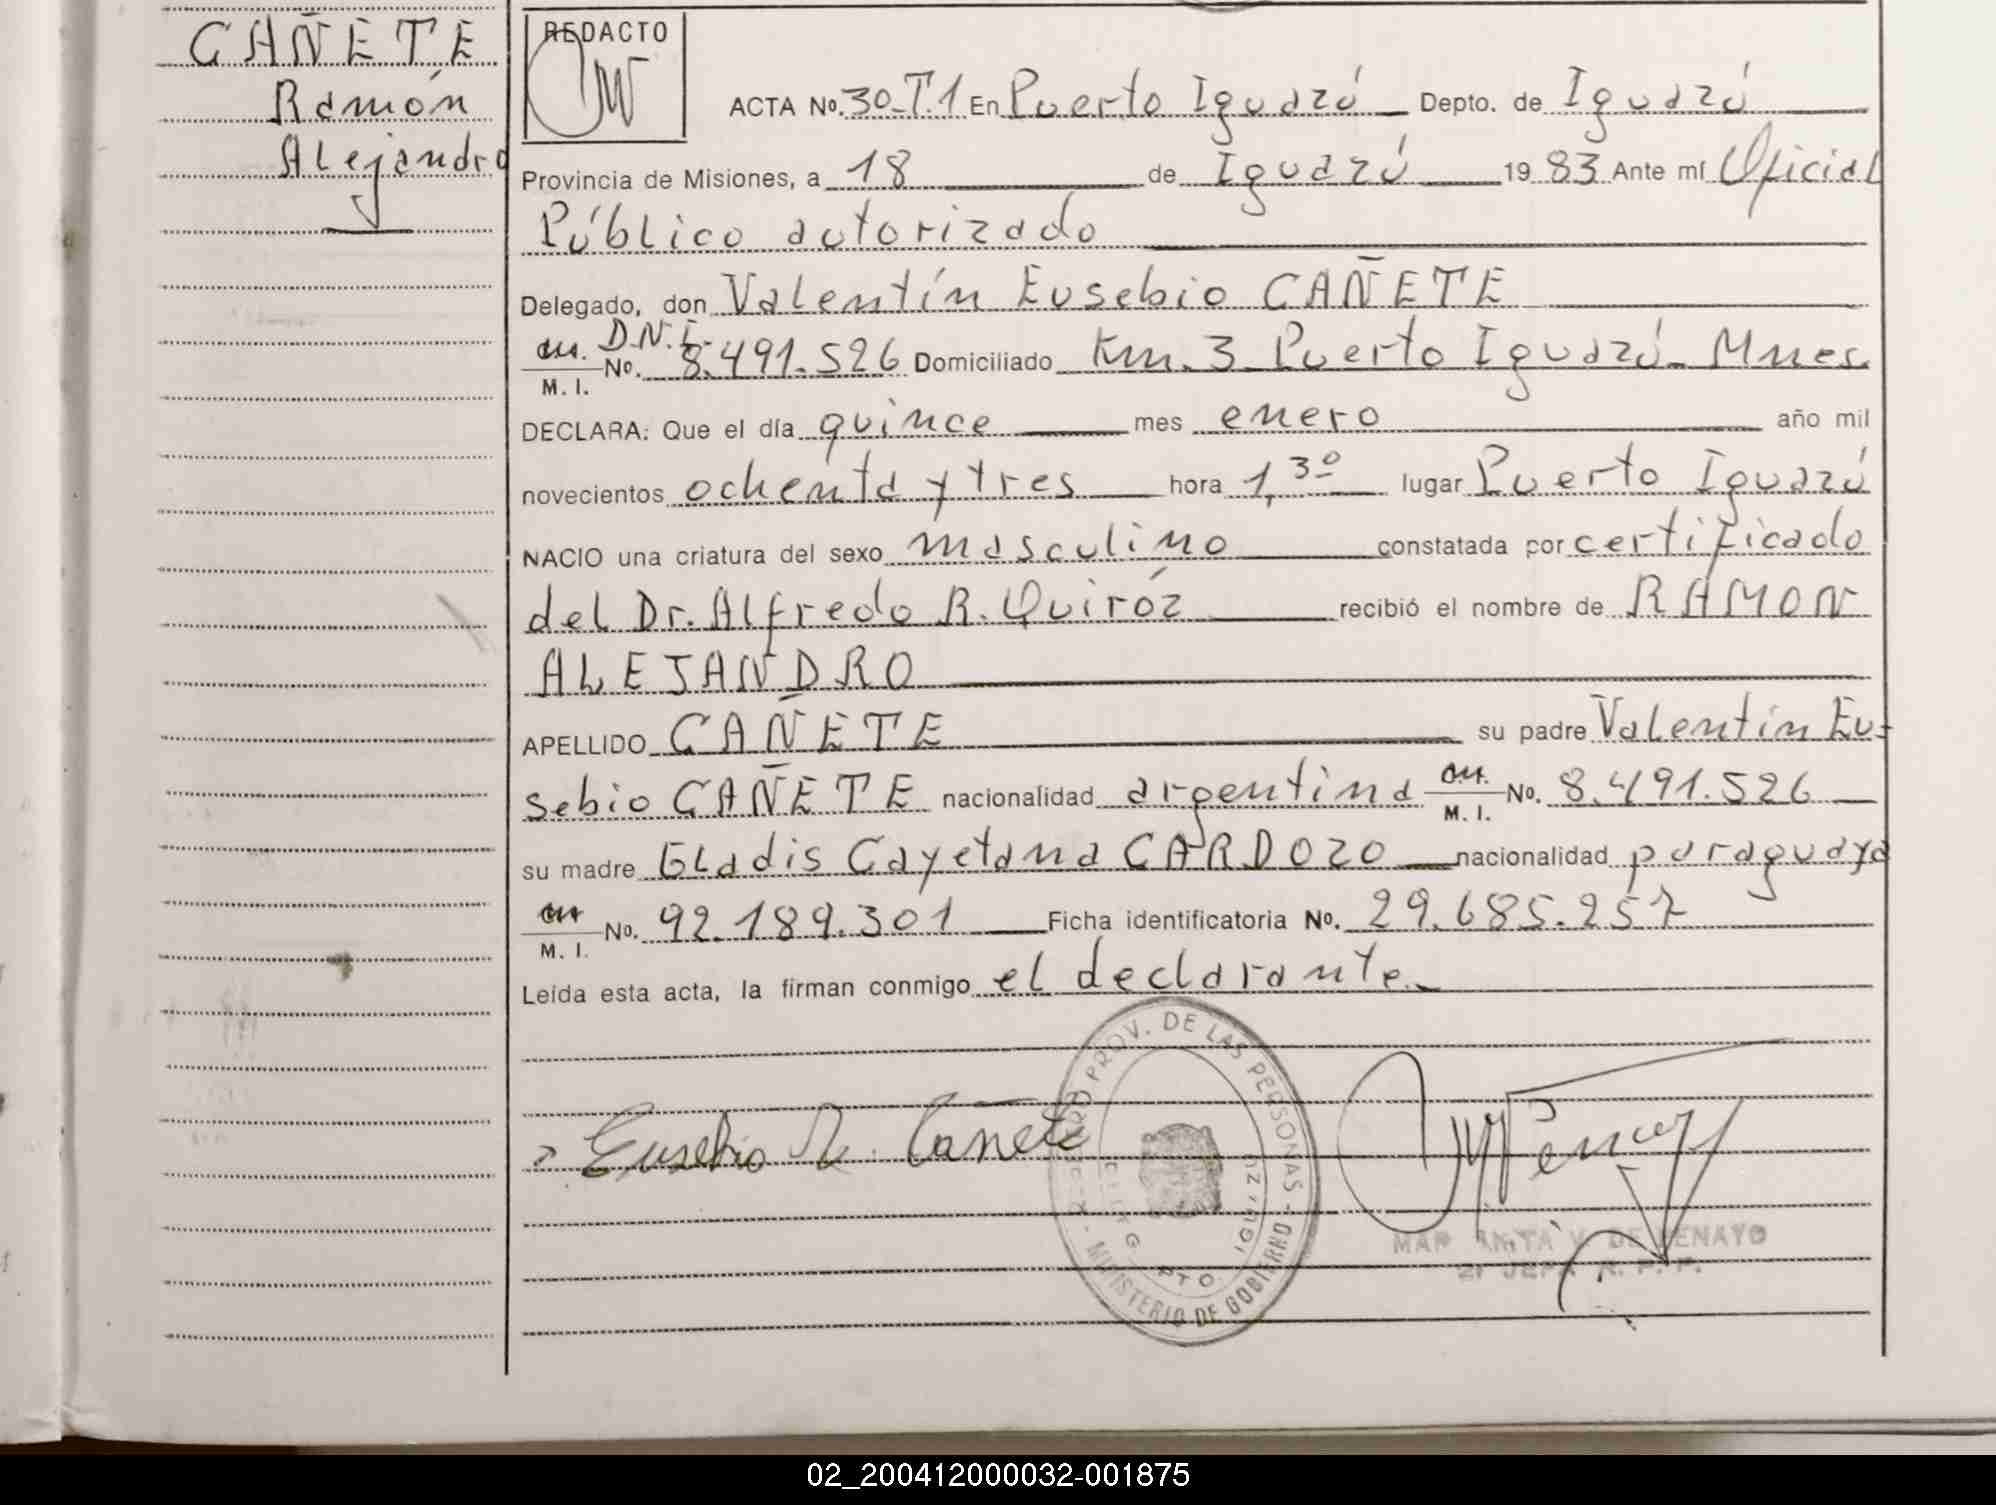 CAÑETE
Ramón
Alejandro
REDACTO
ACTA No. 30-T.1 En Puerto Iguazú Depto. de Iguazú
Provincia de Misiones, a 18 de Iguazú 1983 Ante mí Oficial
Público autorizado
Delegado, don Valentín Eusebio CAÑETE
D.N.I.
M. I. No. 8.491.526 Domiciliado Km. 3 Puerto Iguazú - Mnes.
DECLARA: Que el día quince mes enero año mil
novecientos ochenta y tres hora 1,30 lugar Puerto Iguazú
NACIO una criatura del sexo masculino constatada por certificado
del Dr. Alfredo R. Quiróz recibió el nombre de RAMON
ALEJANDRO
APELLIDO CAÑETE su padre Valentín Eu-
sebio CAÑETE nacionalidad argentina M. I. No. 8.491.526
su madre Gladis Cayetana CARDOZO nacionalidad paraguaya
M. I. No. 92.189.301 Ficha identificatoria No. 29.685.257
Leída esta acta, la firman conmigo el declarante.
PROV. DE LAS PERSONAS - MINISTERIO DE GOBIERNO
PTO. IGUAZU
Eusebio Cañete
V. DE BENAYO
02_200412000032-001875